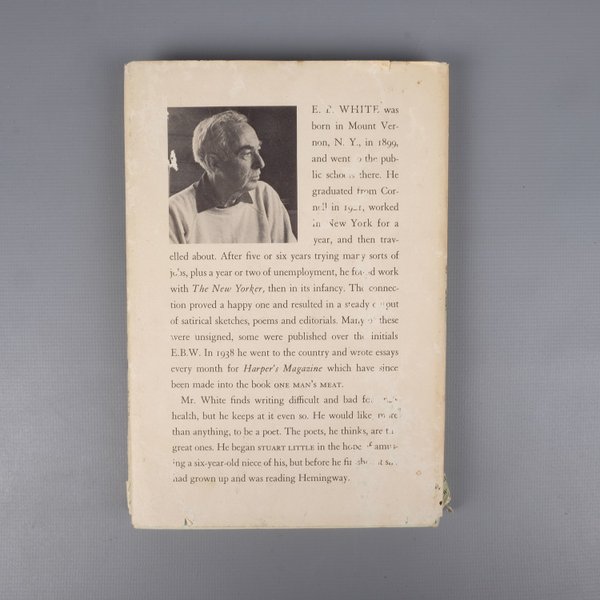 E. B. WHITE was
born in Mount Ver-
non, N. Y., in 1899,
and went to the pub-
lic schools there. He
graduated from Cor-
nell in 1921, worked
in New York for a
year, and then trav-
elled about. After five or six years trying many sorts of
jobs, plus a year or two of unemployment, he found work
with The New Yorker, then in its infancy. The connec-
tion proved a happy one and resulted in a steady output
of satirical sketches, poems and editorials. Many of these
were unsigned, some were published over the initials
E.B.W. In 1938 he went to the country and wrote essays
every month for Harper's Magazine which have since
been made into the book ONE MAN'S MEAT.
Mr. White finds writing difficult and bad for one's
health, but he keeps at it even so. He would like, more
than anything, to be a poet. The poets, he thinks, are the
great ones. He began STUART LITTLE in the hope of amus-
ing a six-year-old niece of his, but before he finished it she
had grown up and was reading Hemingway.